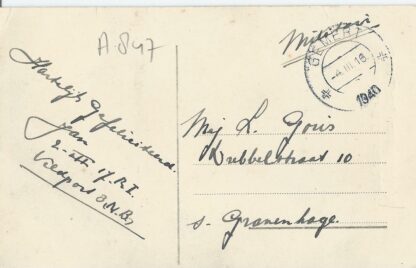 A.847
Militair
GEMERT
-4.III.16
1940
Hartelijk Gefeliciteerd.
Jan
2-III-17.R.I.
Veldpost 3.N.B.
Mej L. Goris
Dubbelstraat 10
s. Gravenhage.